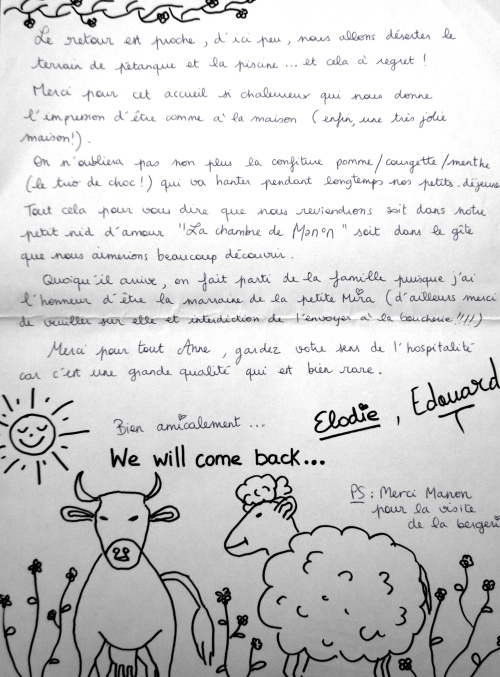 Le retour est proche, d'ici peu, nous allons déserter le
terrain de pétanque et la piscine... et cela à regret !
Merci pour cet accueil si chaleureux qui nous donne
l'impression d'être comme à la maison (enfin, une très jolie
maison!).
On n'oubliera pas non plus la confiture pomme/courgette/menthe
(le trio de choc!) qui va hanter pendant longtemps nos petits-déjeune
Tout cela pour vous dire que nous reviendrons soit dans notre
petit nid d'amour "La chambre de Manon" soit dans le gîte
que nous aimerions beaucoup découvrir.
Quoiqu'il arrive, on fait parti de la famille puisque j'ai
l'honneur d'être la marraine de la petite Mira (d'ailleurs merci
de veiller sur elle et interdiction de l'envoyer à la boucherie !!!!)
Merci pour tout Anne, gardez votre sens de l'hospitalité
car c'est une grande qualité qui est bien rare.
Bien amicalement ...
Elodie, Edouard
We will come back...
PS : Merci Manon
pour la visite
de la bergeri